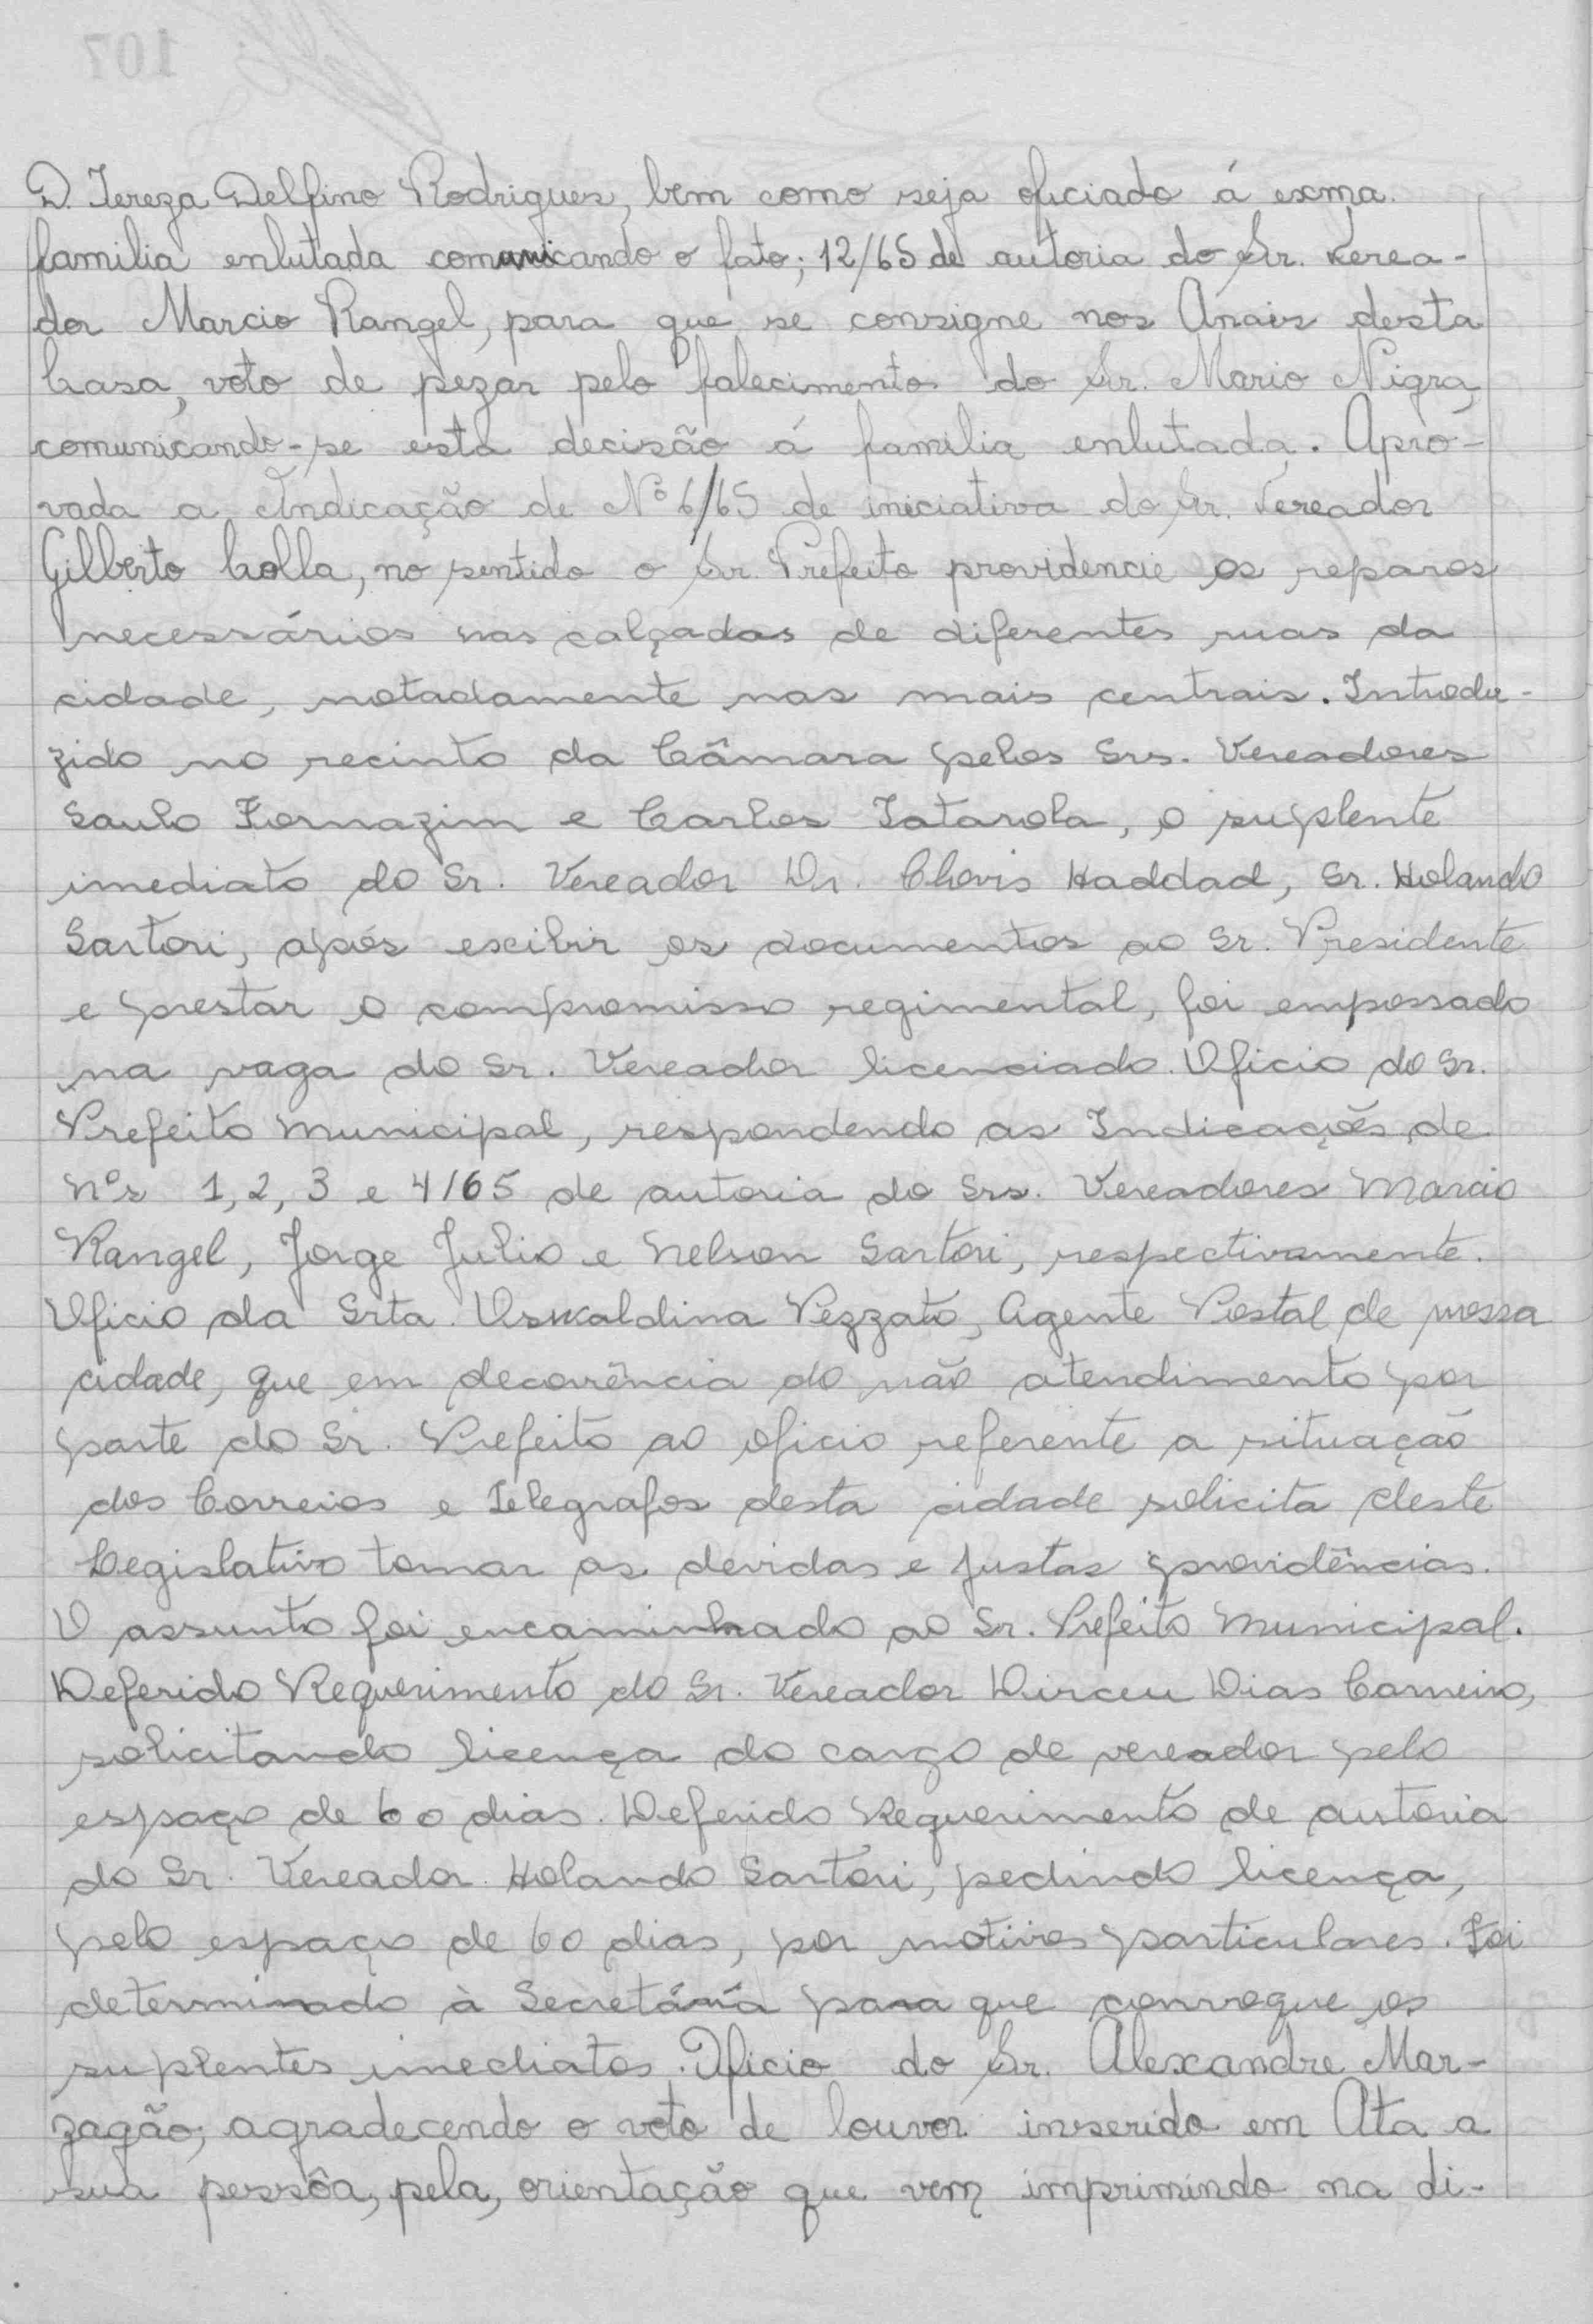 D. Tereza Delfino Rodrigues, bem como seja oficiado á exma.
familia enlutada comunicando o fato; 12/65 de autoria do Sr. Verea-
dor Marcio Rangel, para que se consigne nos Anais desta
Casa, voto de pezar pelo falecimento do Sr. Mario Nigra,
comunicando-se esta decisão á familia enlutada. Apro-
vada a Indicação de Nº 6/65 de iniciativa do Sr. Vereador
Gilberto Colla, no sentido o Sr. Prefeito providencie os reparos
necessários nas calçadas de diferentes ruas da
cidade, notadamente nas mais centrais. Introdu-
zido no recinto da Câmara pelos Srs. Vereadores
Saulo Fornazim e Carlos Tatarola, o suplente
imediato do Sr. Vereador Dr. Clovis Haddad, Sr. Holando
Sartori, após escibir os documentos ao Sr. Presidente
e prestar o compromisso regimental, foi empossado
na vaga do Sr. Vereador licenciado. Oficio do Sr.
Prefeito Municipal, respondendo as Indicações de
Nºs 1, 2, 3 e 4/65 de autoria do Srs. Vereadores Marcio
Rangel, Jorge Julio e Nelson Sartori, respectivamente.
Oficio da Srta. Oswaldina Pezzato, Agente Postal de nossa
cidade, que em decorrência do não atendimento por
parte do Sr. Prefeito ao oficio referente a situação
dos Correios e Telegrafos desta cidade solicita deste
Legislativo tomar as devidas e justas providências.
O assunto foi encaminhado ao Sr. Prefeito Municipal.
Deferido Requerimento do Sr. Vereador Dirceu Dias Carneiro,
solicitando licença do cargo de vereador pelo
espaço de 60 dias. Deferido Requerimento de autoria
do Sr. Vereador Holando Sartori, pedindo licença,
pelo espaço de 60 dias, por motivos particulares. Foi
determinado à Secretária para que convoque os
suplentes imediatos. Oficio do Sr. Alexandre Mar-
zagão, agradecendo o voto de louvor inserido em Ata a
sua pessôa, pela, orientação que vem imprimindo na di-